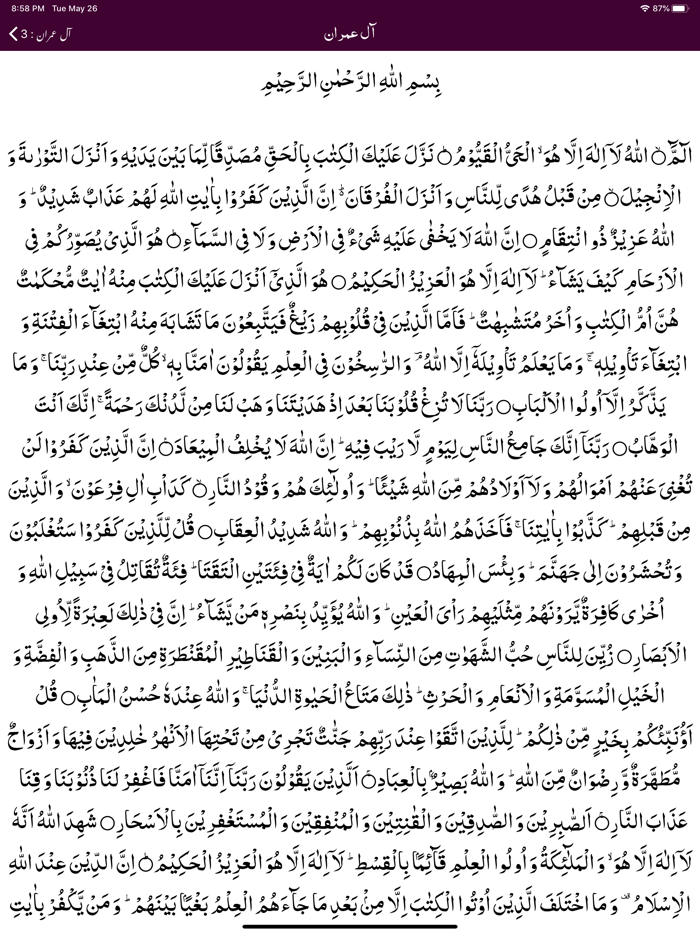 8:58 PM Tue May 26 87%
آل عمران : 3 آل عمران
بِسْمِ اللّٰهِ الرَّحْمٰنِ الرَّحِيْمِ
الٓمَّٓۙ○ اللّٰهُ لَاۤ اِلٰهَ اِلَّا هُوَۙ الْحَىُّ الْقَيُّوْمُؕ○ نَزَّلَ عَلَيْكَ الْكِتٰبَ بِالْحَقِّ مُصَدِّقًا لِّمَا بَيْنَ يَدَيْهِ وَ اَنْزَلَ التَّوْرٰىةَ وَ
الْاِنْجِيْلَۙ○ مِنْ قَبْلُ هُدًى لِّلنَّاسِ وَ اَنْزَلَ الْفُرْقَانَ۬ؕ اِنَّ الَّذِيْنَ كَفَرُوْا بِاٰيٰتِ اللّٰهِ لَهُمْ عَذَابٌ شَدِيْدٌؕ وَ
اللّٰهُ عَزِيْزٌ ذُو انْتِقَامٍ○ اِنَّ اللّٰهَ لَا يَخْفٰى عَلَيْهِ شَىْءٌ فِى الْاَرْضِ وَ لَا فِى السَّمَآءِؕ○ هُوَ الَّذِىْ يُصَوِّرُكُمْ فِى
الْاَرْحَامِ كَيْفَ يَشَآءُؕ لَاۤ اِلٰهَ اِلَّا هُوَ الْعَزِيْزُ الْحَكِيْمُ○ هُوَ الَّذِىْۤ اَنْزَلَ عَلَيْكَ الْكِتٰبَ مِنْهُ اٰيٰتٌ مُّحْكَمٰتٌ
هُنَّ اُمُّ الْكِتٰبِ وَ اُخَرُ مُتَشٰبِهٰتٌؕ فَاَمَّا الَّذِيْنَ فِىْ قُلُوْبِهِمْ زَيْغٌ فَيَتَّبِعُوْنَ مَا تَشَابَهَ مِنْهُ ابْتِغَآءَ الْفِتْنَةِ وَ
ابْتِغَآءَ تَاْوِيْلِهٖۚ وَ مَا يَعْلَمُ تَاْوِيْلَهٗۤ اِلَّا اللّٰهُۘ وَ الرّٰسِخُوْنَ فِى الْعِلْمِ يَقُوْلُوْنَ اٰمَنَّا بِهٖۙ كُلٌّ مِّنْ عِنْدِ رَبِّنَاۚ وَ مَا
يَذَّكَّرُ اِلَّاۤ اُولُوا الْاَلْبَابِ○ رَبَّنَا لَا تُزِغْ قُلُوْبَنَا بَعْدَ اِذْ هَدَيْتَنَا وَ هَبْ لَنَا مِنْ لَّدُنْكَ رَحْمَةًۚ اِنَّكَ اَنْتَ
الْوَهَّابُ○ رَبَّنَاۤ اِنَّكَ جَامِعُ النَّاسِ لِيَوْمٍ لَّا رَيْبَ فِيْهِؕ اِنَّ اللّٰهَ لَا يُخْلِفُ الْمِيْعَادَ○ اِنَّ الَّذِيْنَ كَفَرُوْا لَنْ
تُغْنِىَ عَنْهُمْ اَمْوَالُهُمْ وَ لَاۤ اَوْلَادُهُمْ مِّنَ اللّٰهِ شَيْئًاؕ وَ اُولٰٓئِكَ هُمْ وَ قُوْدُ النَّارِۙ○ كَدَاْبِ اٰلِ فِرْعَوْنَۙ وَ الَّذِيْنَ
مِنْ قَبْلِهِمْؕ كَذَّبُوْا بِاٰيٰتِنَاۚ فَاَخَذَهُمُ اللّٰهُ بِذُنُوْبِهِمْؕ وَ اللّٰهُ شَدِيْدُ الْعِقَابِ○ قُلْ لِّلَّذِيْنَ كَفَرُوْا سَتُغْلَبُوْنَ
وَ تُحْشَرُوْنَ اِلٰى جَهَنَّمَؕ وَ بِئْسَ الْمِهَادُ○ قَدْ كَانَ لَكُمْ اٰيَةٌ فِىْ فِئَتَيْنِ الْتَقَتَاؕ فِئَةٌ تُقَاتِلُ فِىْ سَبِيْلِ اللّٰهِ وَ
اُخْرٰى كَافِرَةٌ يَّرَوْنَهُمْ مِّثْلَيْهِمْ رَاْىَ الْعَيْنِؕ وَ اللّٰهُ يُؤَيِّدُ بِنَصْرِهٖ مَنْ يَّشَآءُؕ اِنَّ فِىْ ذٰلِكَ لَعِبْرَةً لِّاُولِى
الْاَبْصَارِ○ زُيِّنَ لِلنَّاسِ حُبُّ الشَّهَوٰتِ مِنَ النِّسَآءِ وَ الْبَنِيْنَ وَ الْقَنَاطِيْرِ الْمُقَنْطَرَةِ مِنَ الذَّهَبِ وَ الْفِضَّةِ وَ
الْخَيْلِ الْمُسَوَّمَةِ وَ الْاَنْعَامِ وَ الْحَرْثِؕ ذٰلِكَ مَتَاعُ الْحَيٰوةِ الدُّنْيَاۚ وَ اللّٰهُ عِنْدَهٗ حُسْنُ الْمَاٰبِ○ قُلْ
اَؤُنَبِّئُكُمْ بِخَيْرٍ مِّنْ ذٰلِكُمْؕ لِلَّذِيْنَ اتَّقَوْا عِنْدَ رَبِّهِمْ جَنّٰتٌ تَجْرِىْ مِنْ تَحْتِهَا الْاَنْهٰرُ خٰلِدِيْنَ فِيْهَا وَ اَزْوَاجٌ
مُّطَهَّرَةٌ وَّ رِضْوَانٌ مِّنَ اللّٰهِؕ وَ اللّٰهُ بَصِيْرٌۢ بِالْعِبَادِۚ○ اَلَّذِيْنَ يَقُوْلُوْنَ رَبَّنَاۤ اِنَّنَاۤ اٰمَنَّا فَاغْفِرْ لَنَا ذُنُوْبَنَا وَ قِنَا
عَذَابَ النَّارِۚ○ اَلصّٰبِرِيْنَ وَ الصّٰدِقِيْنَ وَ الْقٰنِتِيْنَ وَ الْمُنْفِقِيْنَ وَ الْمُسْتَغْفِرِيْنَ بِالْاَسْحَارِ○ شَهِدَ اللّٰهُ اَنَّهٗ
لَاۤ اِلٰهَ اِلَّا هُوَۙ وَ الْمَلٰٓئِكَةُ وَ اُولُوا الْعِلْمِ قَآئِمًۢا بِالْقِسْطِؕ لَاۤ اِلٰهَ اِلَّا هُوَ الْعَزِيْزُ الْحَكِيْمُؕ○ اِنَّ الدِّيْنَ عِنْدَ اللّٰهِ
الْاِسْلَامُ۫ وَ مَا اخْتَلَفَ الَّذِيْنَ اُوْتُوا الْكِتٰبَ اِلَّا مِنْۢ بَعْدِ مَا جَآءَهُمُ الْعِلْمُ بَغْيًۢا بَيْنَهُمْؕ وَ مَنْ يَّكْفُرْ بِاٰيٰتِ